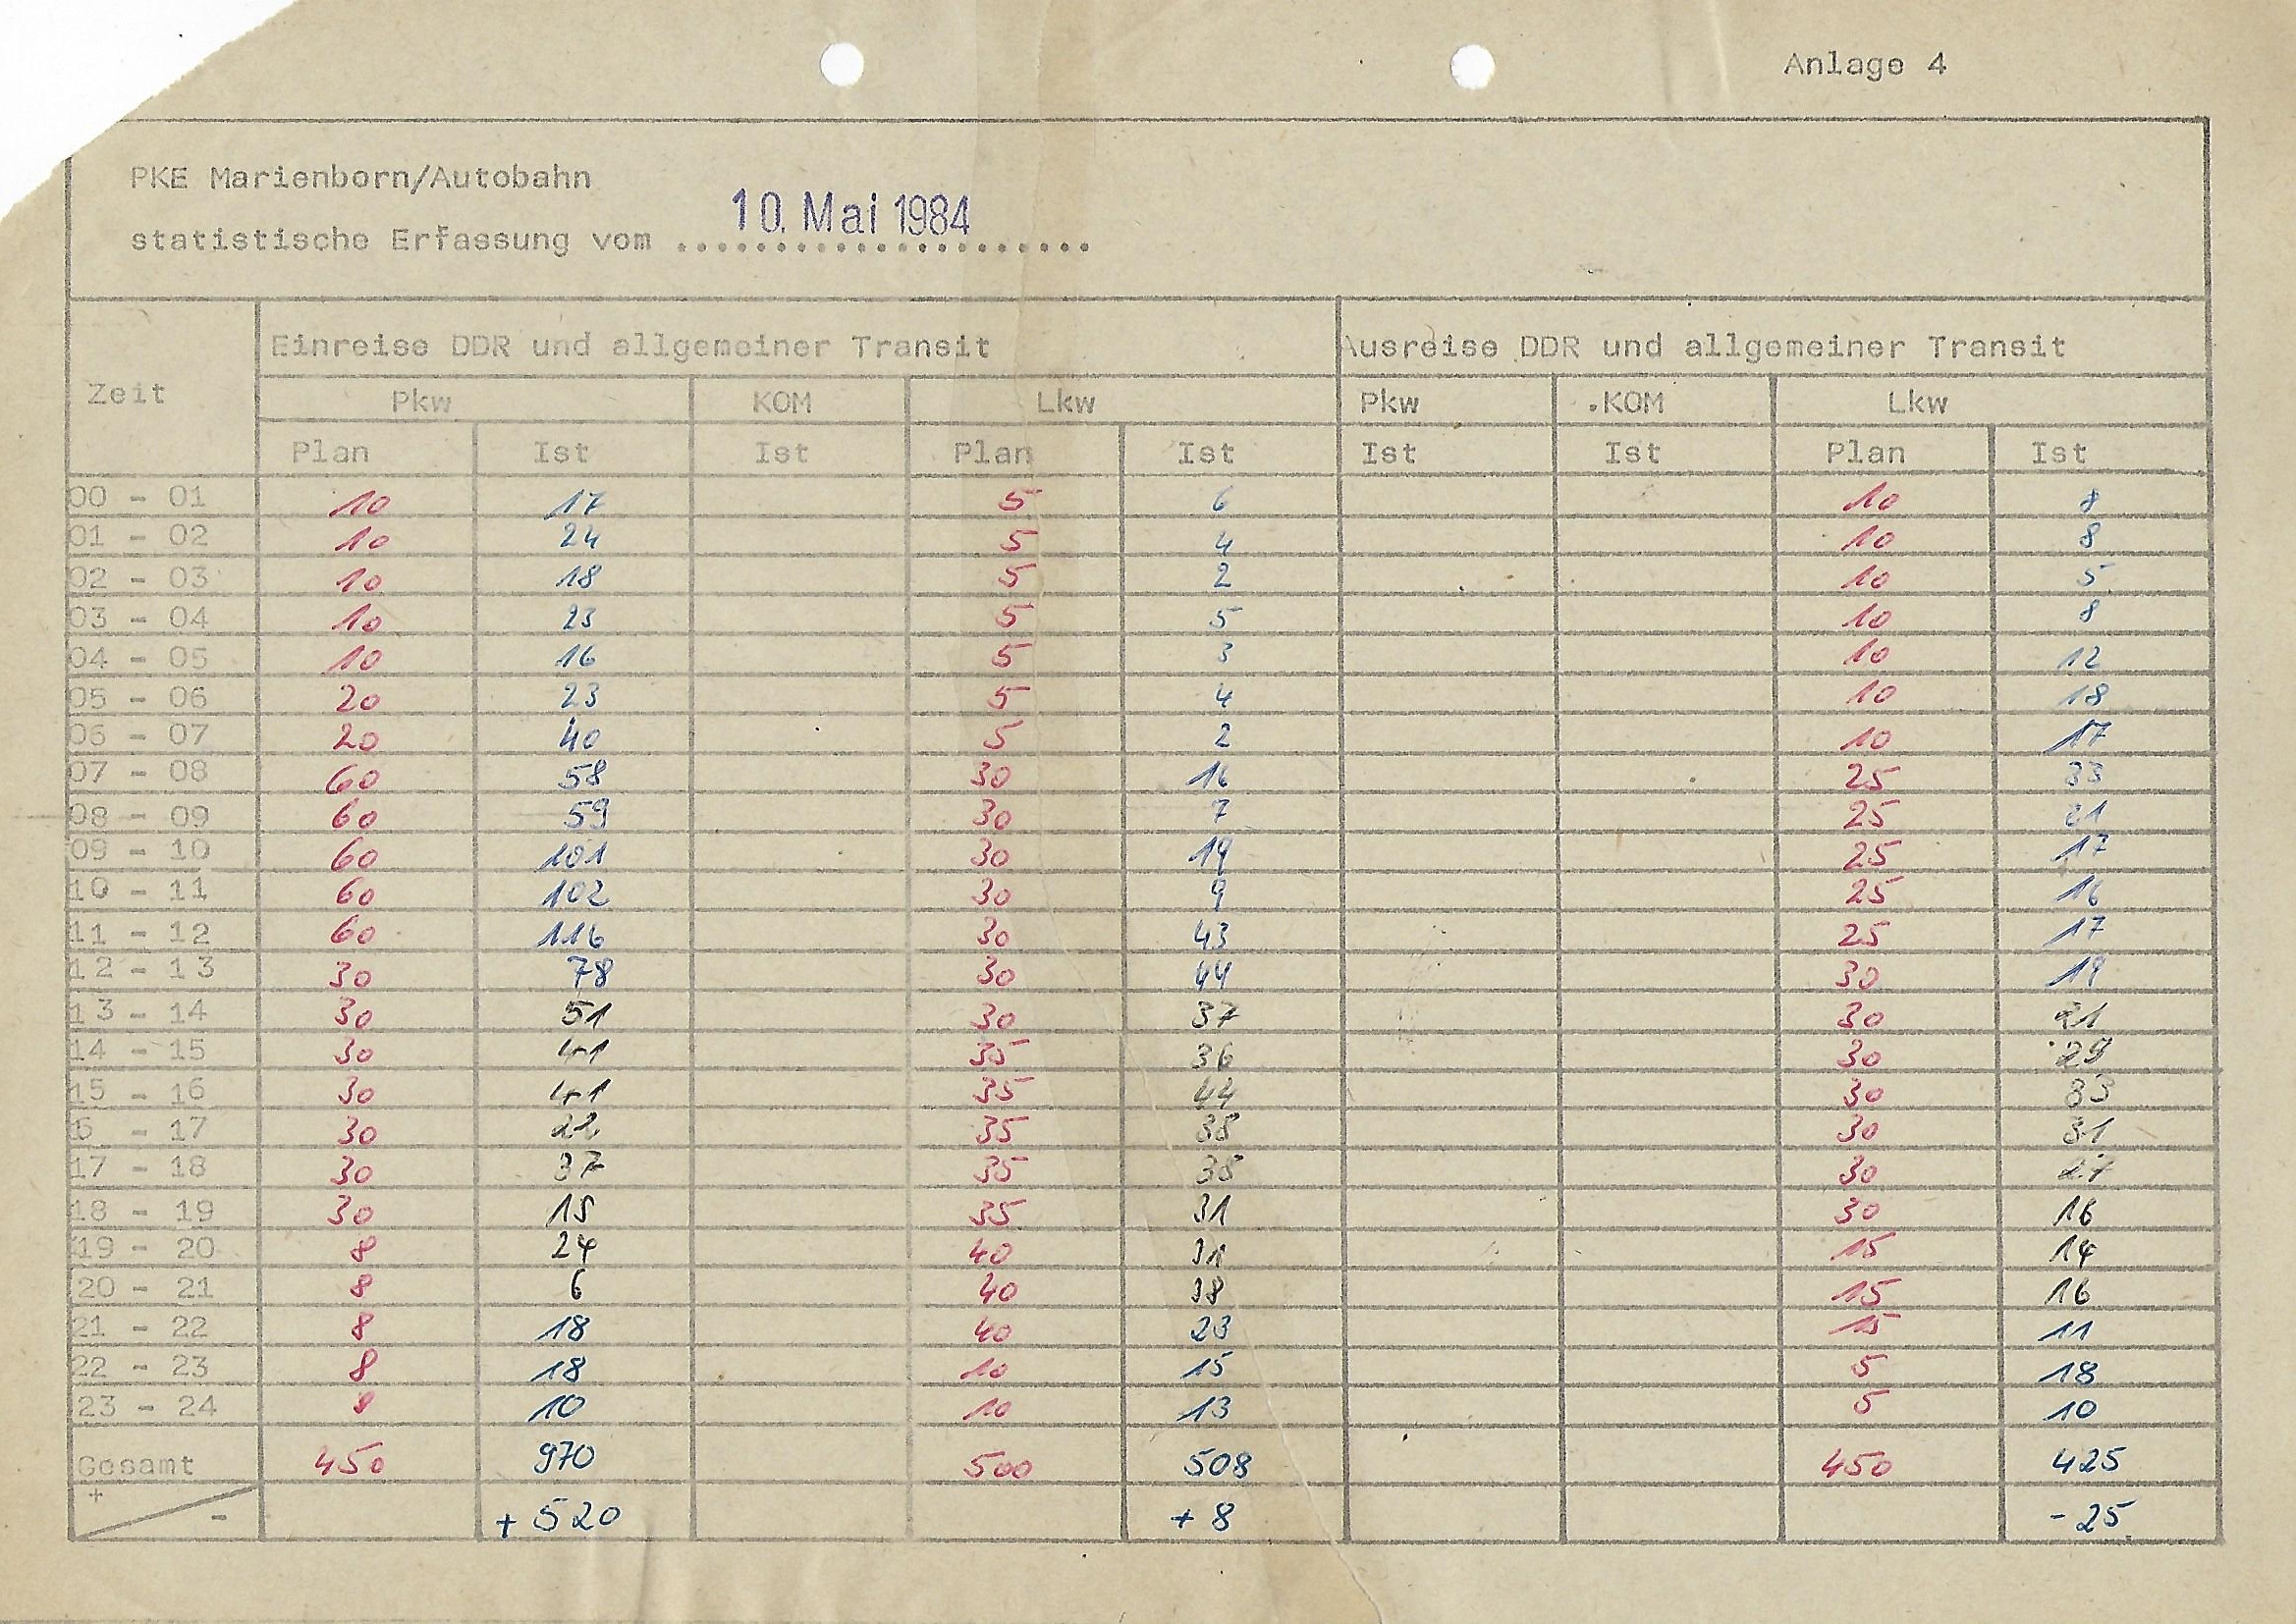 Anlage 4
PKE Marienborn/Autobahn
statistische Erfassung vom 10. Mai 1984
Zeit Einreise DDR und allgemeiner Transit Ausreise DDR und allgemeiner Transit
Pkw KOM Lkw Pkw .KOM Lkw
Plan Ist Ist Plan Ist Ist Ist Plan Ist
00 - 01 10 17 5 6 10 8
01 - 02 10 24 5 4 10 8
02 - 03 10 18 5 2 10 5
03 - 04 10 23 5 5 10 8
04 - 05 10 16 5 3 10 12
05 - 06 20 23 5 4 10 18
06 - 07 20 40 5 2 10 17
07 - 08 60 58 30 16 25 33
08 - 09 60 59 30 7 25 21
09 - 10 60 101 30 19 25 17
10 - 11 60 102 30 9 25 16
11 - 12 60 116 30 43 25 17
12 - 13 30 78 30 44 30 19
13 - 14 30 51 30 37 30 21
14 - 15 30 41 35 36 30 29
15 - 16 30 41 35 44 30 33
6 - 17 30 22 35 38 30 31
17 - 18 30 37 35 38 30 27
18 - 19 30 15 35 31 30 16
19 - 20 8 24 40 31 15 14
20 - 21 8 6 40 38 15 16
21 - 22 8 18 40 23 15 11
22 - 23 8 18 10 15 5 18
23 - 24 8 10 10 13 5 10
Gesamt 450 970 500 508 450 425
+ - + 520 + 8 - 25